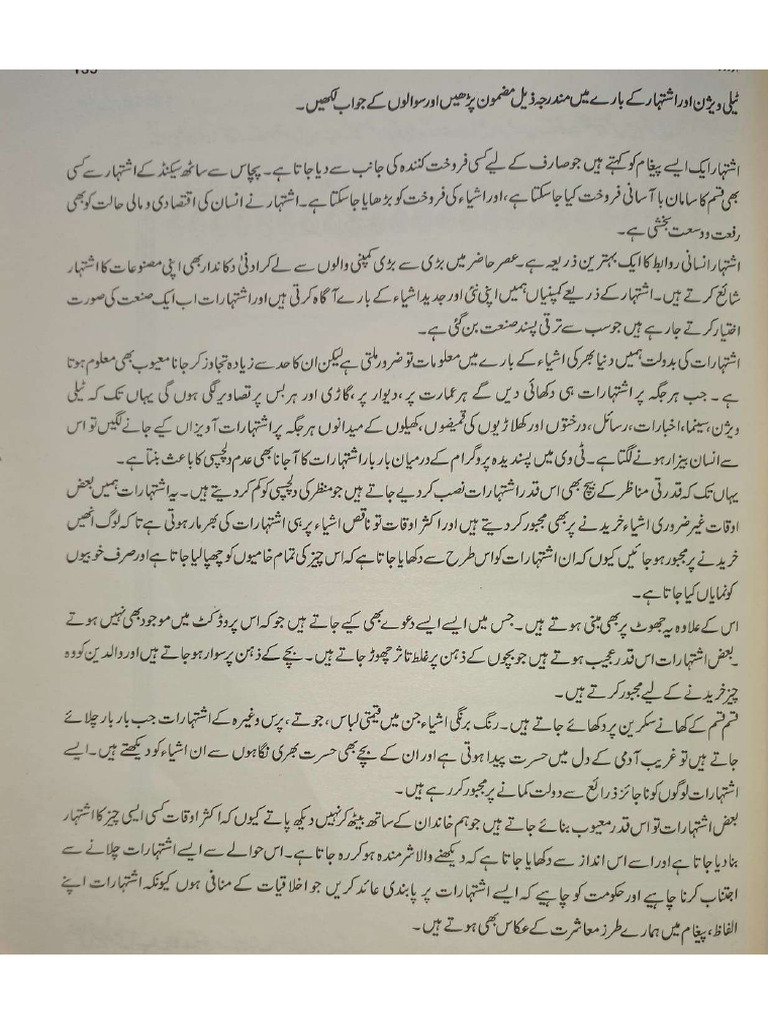 ٹیلی ویژن اور اشتہار کے بارے میں مندرجہ ذیل مضمون پڑھیں اور سوالوں کے جواب لکھیں۔
اشتہار ایک ایسے پیغام کو کہتے ہیں جو صارف کے لیے کسی فروخت کنندہ کی جانب سے دیا جاتا ہے۔ پچاس سے ساٹھ سیکنڈ کے اشتہار سے کسی
بھی قسم کا سامان با آسانی فروخت کیا جا سکتا ہے، اور اشیاء کی فروخت کو بڑھایا جا سکتا ہے۔ اشتہار نے انسان کی اقتصادی و مالی حالت کو بھی
رفعت و وسعت بخشی ہے۔
اشتہار انسانی روابط کا ایک بہترین ذریعہ ہے۔ عصر حاضر میں بڑی سے بڑی کمپنی والوں سے لے کر ادنیٰ دکاندار بھی اپنی مصنوعات کا اشتہار
شائع کرتے ہیں۔ اشتہار کے ذریعے کمپنیاں ہمیں اپنی نئی اور جدید اشیاء کے بارے آگاہ کرتی ہیں اور اشتہارات اب ایک صنعت کی صورت
اختیار کرتے جا رہے ہیں جو سب سے ترقی پسند صنعت بن گئی ہے۔
اشتہارات کی بدولت ہمیں دنیا بھر کی اشیاء کے بارے میں معلومات تو ضرور ملتی ہے لیکن ان کا حد سے زیادہ تجاوز کر جانا معیوب بھی معلوم ہوتا
ہے۔ جب ہر جگہ پر اشتہارات ہی دکھائی دیں گے ہر عمارت پر، دیوار پر، گاڑی اور ہر بس پر تصاویر لگی ہوں گی یہاں تک کہ ٹیلی
ویژن، سینما، اخبارات، رسائل، درختوں اور کھلاڑیوں کی قمیضوں، کھیلوں کے میدانوں ہر جگہ پر اشتہارات آویزاں کیے جانے لگیں تو اس
سے انسان بیزار ہونے لگتا ہے۔ ٹی وی میں پسندیدہ پروگرام کے درمیان بار بار اشتہارات کا آ جانا بھی عدم دلچسپی کا باعث بنتا ہے۔
یہاں تک کہ قدرتی مناظر کے بیچ بھی اس قدر اشتہارات نصب کر دیے جاتے ہیں جو منظر کی دلچسپی کو کم کر دیتے ہیں۔ یہ اشتہارات ہمیں بعض
اوقات غیر ضروری اشیاء خریدنے پر بھی مجبور کر دیتے ہیں اور اکثر اوقات تو ناقص اشیاء پر ہی اشتہارات کی بھر مار ہوتی ہے تاکہ لوگ انھیں
خریدنے پر مجبور ہو جائیں کیوں کہ ان اشتہارات کو اس طرح سے دکھایا جاتا ہے کہ اس چیز کی تمام خامیوں کو چھپا لیا جاتا ہے اور صرف خوبیوں
کو نمایاں کیا جاتا ہے۔
اس کے علاوہ یہ جھوٹ پر بھی مبنی ہوتے ہیں۔ جس میں ایسے ایسے دعوے بھی کیے جاتے ہیں جو کہ اس پروڈکٹ میں موجود بھی نہیں ہوتے
۔ بعض اشتہارات اس قدر عجیب ہوتے ہیں جو بچوں کے ذہن پر غلط تاثر چھوڑ جاتے ہیں۔ بچے کے ذہن پر سوار ہو جاتے ہیں اور والدین کو وہ
چیز خریدنے کے لیے مجبور کرتے ہیں۔
قسم قسم کے کھانے سکرین پر دکھائے جاتے ہیں۔ رنگ برنگی اشیاء جن میں قیمتی لباس، جوتے، پرس وغیرہ کے اشتہارات جب بار بار چلائے
جاتے ہیں تو غریب آدمی کے دل میں حسرت پیدا ہوتی ہے اور ان کے بچے بھی حسرت بھری نگاہوں سے ان اشیاء کو دیکھتے ہیں۔ ایسے
اشتہارات لوگوں کو ناجائز ذرائع سے دولت کمانے پر مجبور کر رہے ہیں۔
بعض اشتہارات تو اس قدر معیوب بنائے جاتے ہیں جو ہم خاندان کے ساتھ بیٹھ کر نہیں دیکھ پاتے کیوں کہ اکثر اوقات کسی ایسی چیز کا اشتہار
بنا دیا جاتا ہے اور اسے اس انداز سے دکھایا جاتا ہے کہ دیکھنے والا شرمندہ ہو کر رہ جاتا ہے۔ اس حوالے سے ایسے اشتہارات چلانے سے
اجتناب کرنا چاہیے اور حکومت کو چاہیے کہ ایسے اشتہارات پر پابندی عائد کریں جو اخلاقیات کے منافی ہوں کیونکہ اشتہارات اپنے
الفاظ، پیغام میں ہمارے طرز معاشرت کے عکاس بھی ہوتے ہیں۔